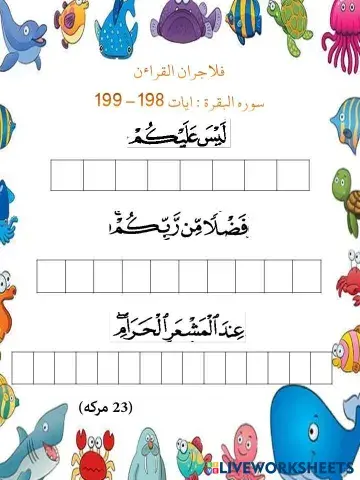 فلاجران القراءن
سوره البقرة : ايات 198 – 199
لَيْسَ عَلَيْكُمْ
فَضْلًا مِّن رَّبِّكُمْ ۚ
عِندَ ٱلْمَشْعَرِ ٱلْحَرَامِ ۖ
(23 مركه)
LIVEWORKSHEETS